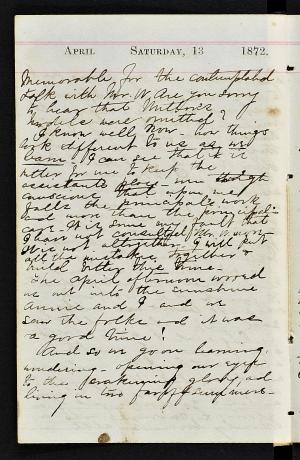 April Saturday, 13 1872.
Memorable for the contemplated
talk with Mr. W. Are you sorry
to hear that
were omitted?
I know well now - how things
look different to us as we
learn. I can see that it is
for me to keep the
assistants
conscious that upon me
falls the principal's work
and more than the principal's
care. It is some my fault that
I have not consulted Mr. W more.
altogether. I will put
all the mistakes together &
build better this time.
The April afternoon wooed
us out into the sunshine
Annie and I and we
saw the folks and it was
a good time!
And so we go on learning,
wondering - opening our eyes
to the awakening glory, and
living in too far off